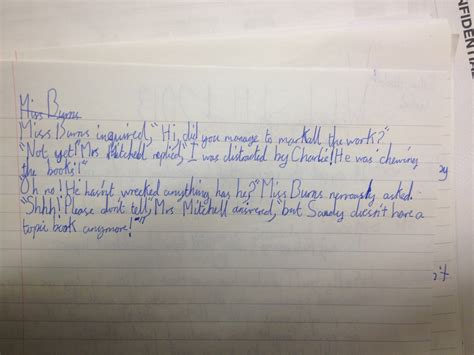 NFIDENTIAL
Miss Burns
Miss Burns inquired, "Hi, did you manage to mark all the work?"
"Not yet!" Mrs Mitchell replied, "I was distracted by Charlie! He was chewing
the books!"
Oh no! He hasn't wrecked anything has he?" Miss Burns nervously asked.
"Shhh! Please don't tell," Mrs Mitchell answered, "but Sandy doesn't have a
topic book anymore!"